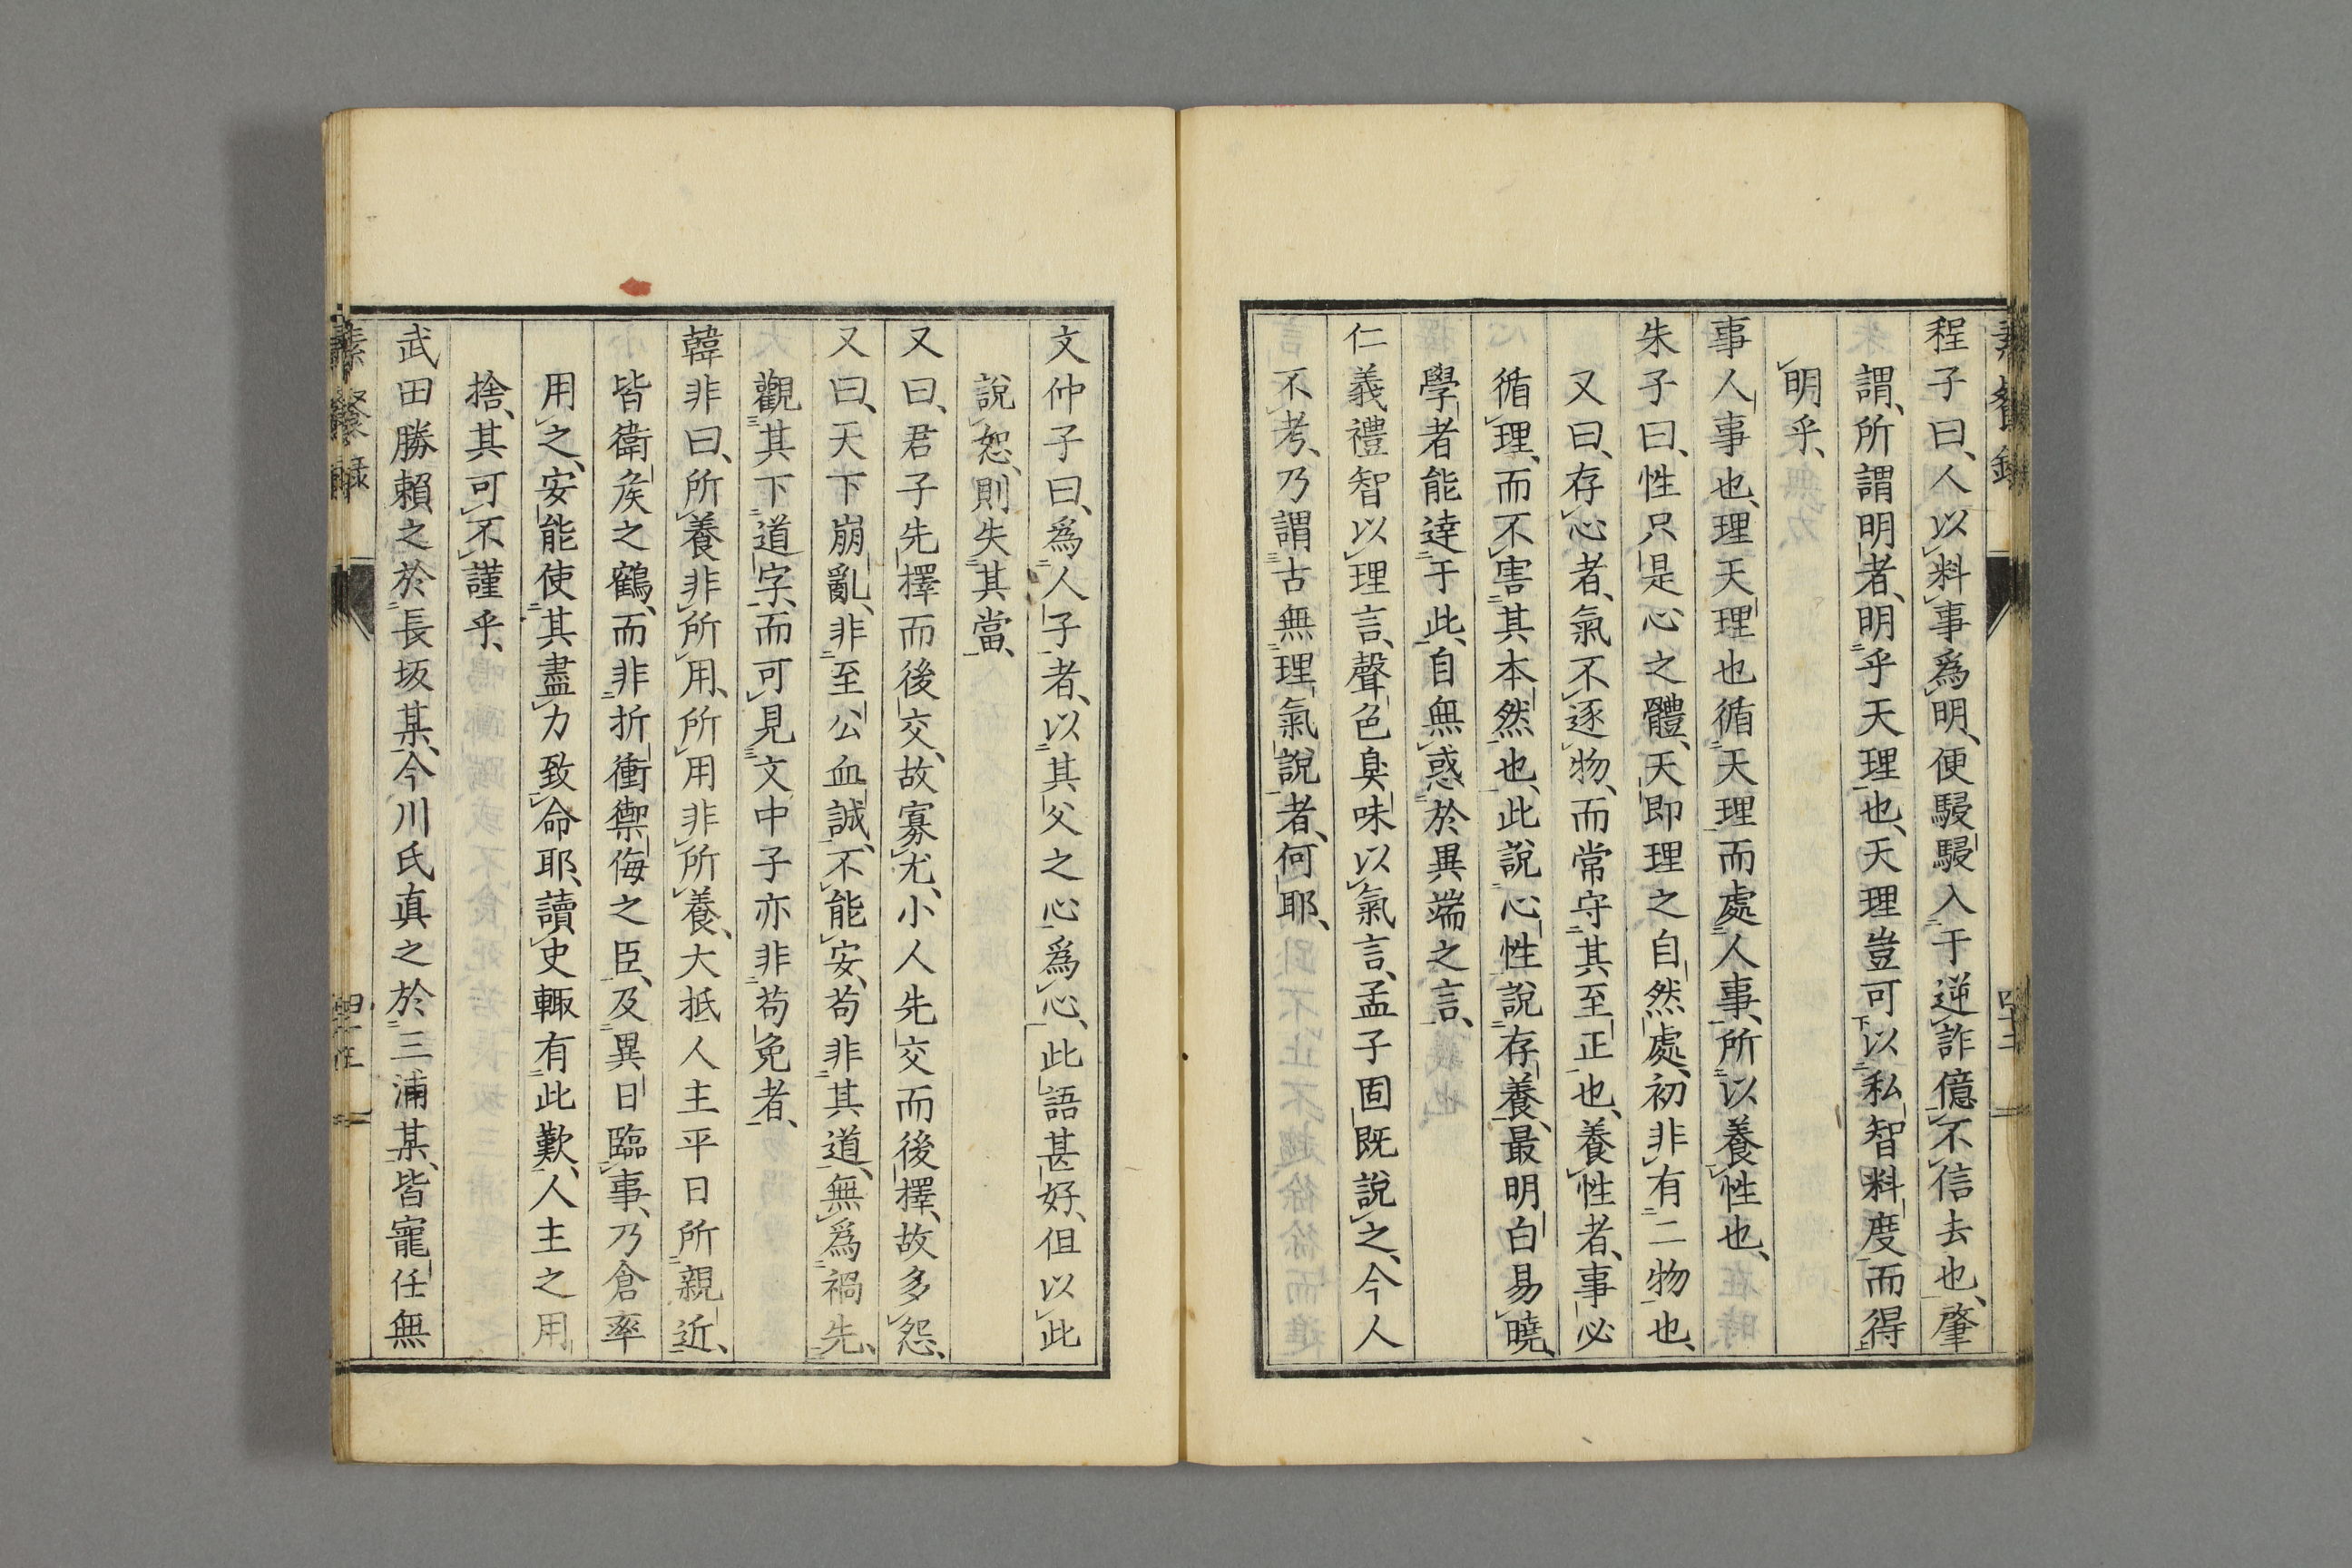 程子曰、人以料事爲明、便駸駸入于逆詐億不信去也、肇
謂、所謂明者、明乎天理也、天理豈可以私智料度而得
明乎、
事人事也、理天理也循天理而處人事、所以養性也、
朱子曰、性只是心之體、天即理之自然處、初非有二物也、
又曰、存心者、氣不逐物、而常守其至正也、養性者、事必
循理、而不害其本然也、此說心性說存養、最明白易曉、
學者能達于此、自無惑於異端之言、
仁義禮智以理言、聲色臭味以氣言、孟子固既說之、今人
不考、乃謂古無理氣說者、何耶、
文仲子曰、爲人子者、以其父之心爲心、此語甚好、但以此
說恕、則失其當、
又曰、君子先擇而後交、故寡尤、小人先交而後擇、故多怨、
又曰、天下崩亂、非至公血誠、不能安、苟非其道、無爲禍先、
觀其下道字、而可見文中子亦非苟免者、
韓非曰、所養非所用、所用非所養、大抵人主平日所親近、
皆衛矦之鶴、而非折衝禦侮之臣、及異日臨事、乃倉卒
用之、安能使其盡力致命耶、讀史輙有此歎、人主之用
捨、其可不謹乎、
武田勝賴之於長坂某、今川氏真之於三浦某、皆寵任無
素餐録